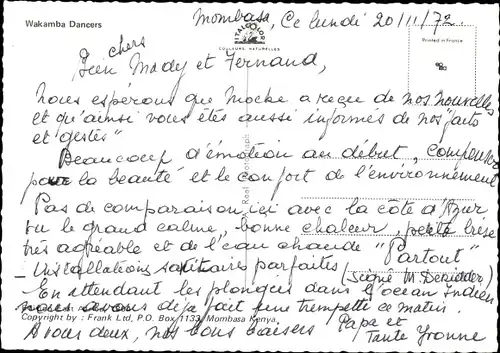 Wakamba Dancers
Mombasa, Ce lundi 20/11/72
ITALCOLOR
COULEURS NATURELLES
Printed in France
chers
Bien Mady et Fernand,
Nous espérons que Mocke a reçu de nos nouvelles
et qu'ainsi vous êtes aussi informés de nos "faits
et gestes"
Beaucoup d'émotion au début, compensée
par la beauté et le confort de l'environnement
Pas de comparaison ici avec la côte d'Azur
vu le grand calme, bonne chaleur, petite brise
très agréable et de l'eau chaude "Partout"
- Installations sanitaires parfaites (signé M. Deridder)
En attendant les plonges dans l'océan Indien
nous avons déjà fait une trempette ce matin.
Copyright by : Frank Ltd, P.O. Box 1133, Mombasa Kenya
A vous deux, nos bons baisers Papa et
Tante Yvonne